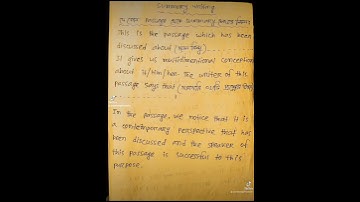 Summary writing
passage summary
This is the passage which has been
discussed about
It gives us multidimentional conception
about it/him/her. The writer of this
passage says that
In the passage, we notice that it is
a contemporary perspective that has
been discussed and the speaker of
this passage is successful to this
purpose.